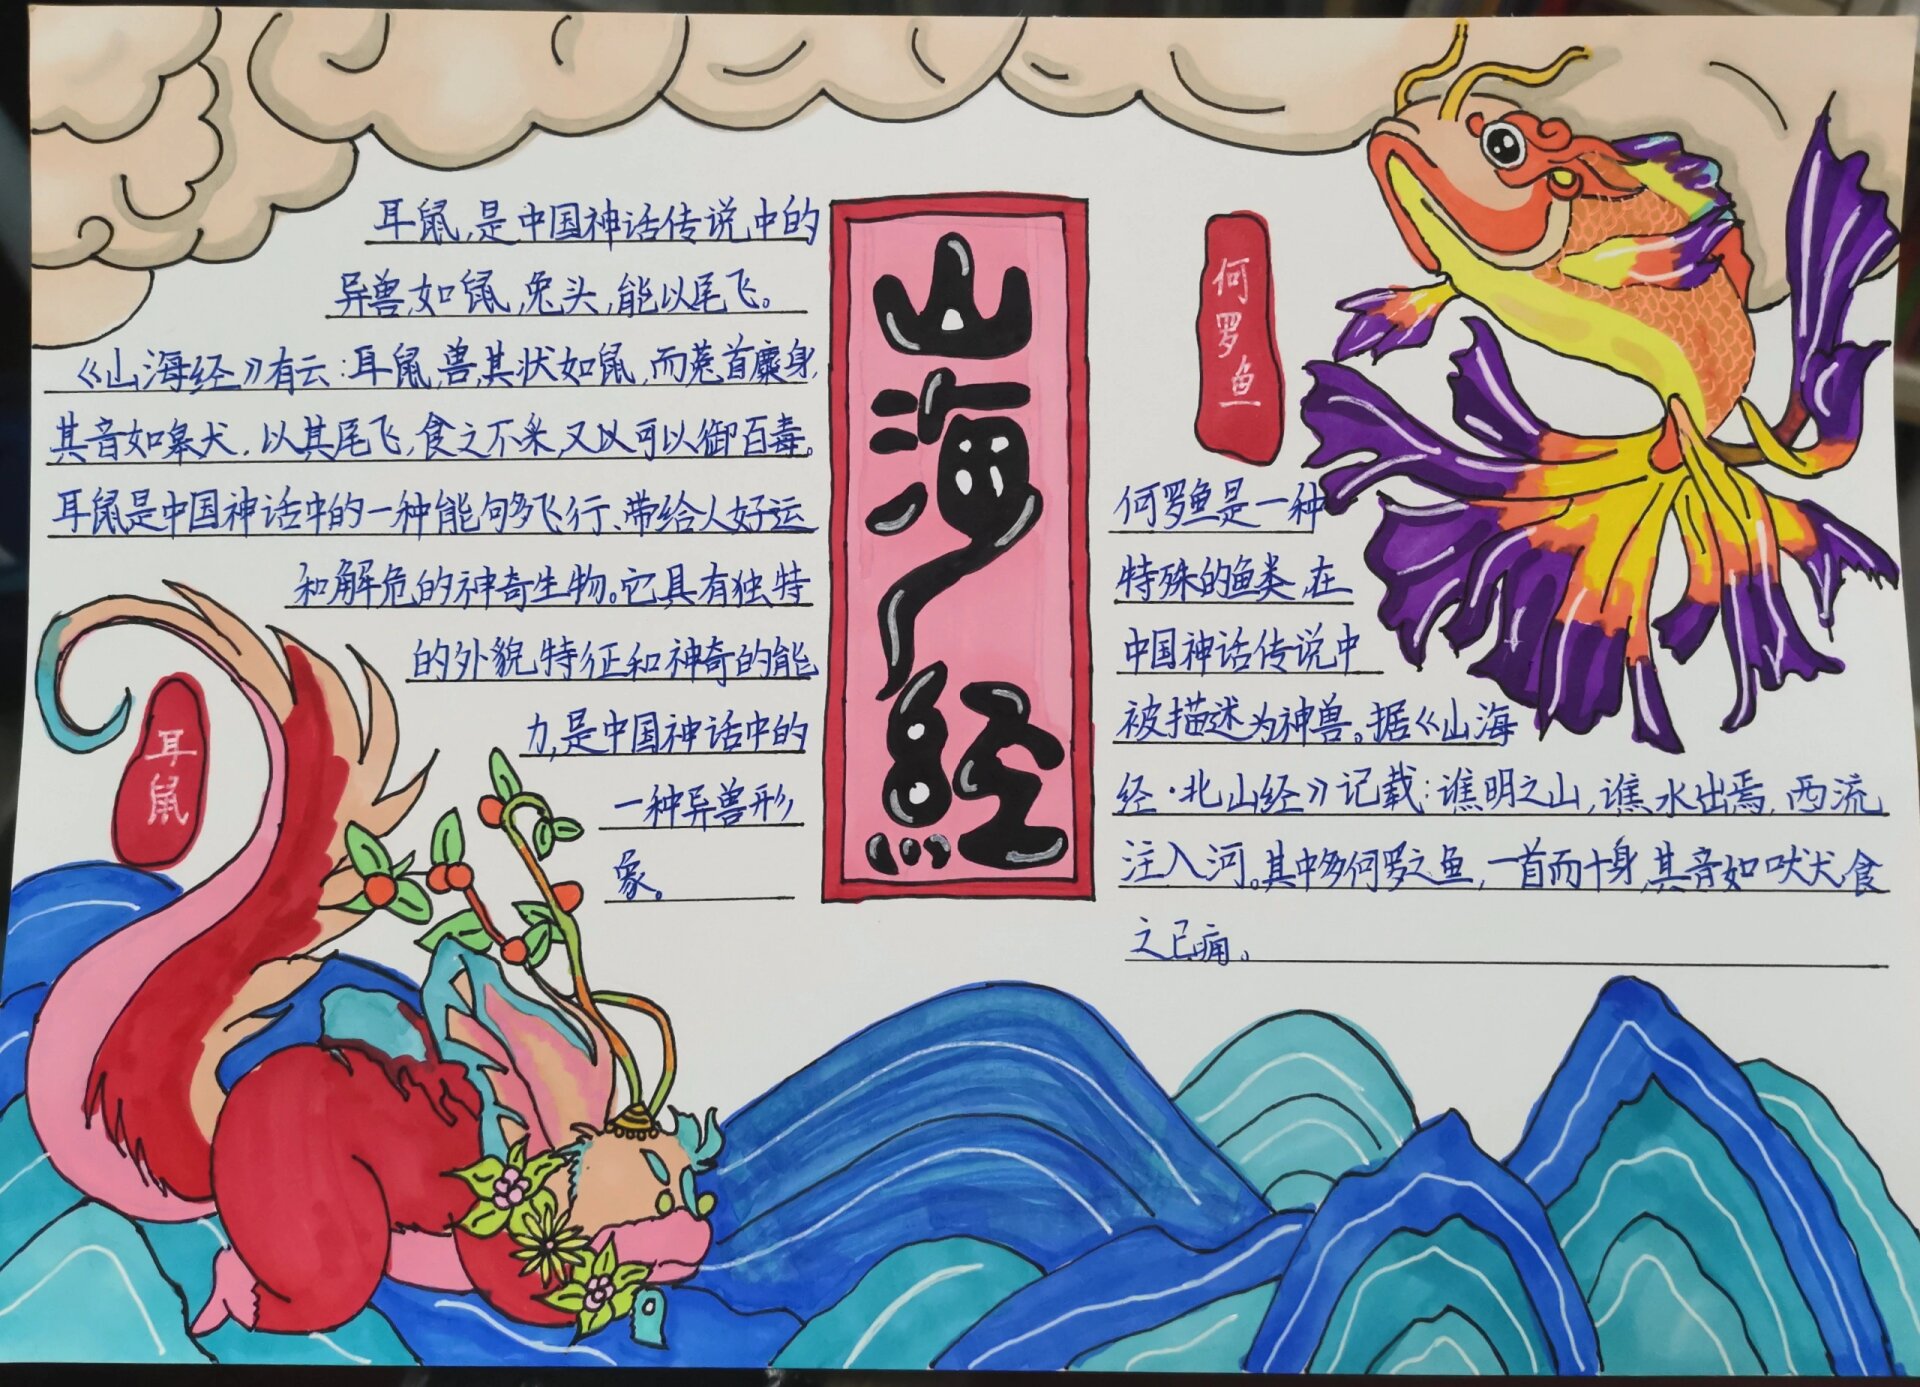 耳鼠,是中国神话传说中的
异兽,如鼠,兔头,能以尾飞。
《山海经》有云:耳鼠,兽,其状如鼠,而菟首麋身,
其音如嗥犬,以其尾飞,食之不采,又以可以御百毒。
耳鼠是中国神话中的一种能够飞行、带给人好运
和解危的神奇生物。它具有独特
的外貌特征和神奇的能
力,是中国神话中的
一种异兽形
象。
耳鼠
山海经
何罗鱼
何罗鱼是一种
特殊的鱼类,在
中国神话传说中
被描述为神兽。据《山海
经·北山经》记载:谯明之山,谯水出焉,西流
注入河。其中多何罗之鱼,一首而十身,其音如吠犬食
之已痈。